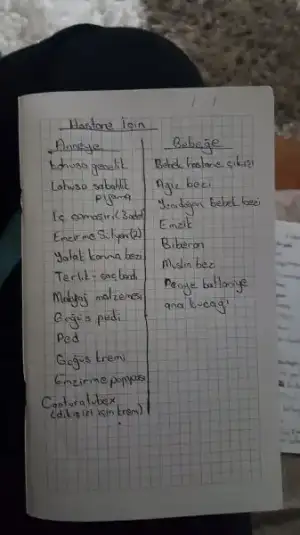 Hastane için
Anneye
Lohusa gecelik
Lohusa sabahlık
pijama
İç çamaşırı (3 adet)
Emzirme Sütyeni (2)
Yatak koruma bezi
Terlik - saç bandı
Makyaj malzemesi
Göğüs pedi
Ped
Göğüs kremi
Emzirme pompası
Contratubex
(dikiş izi için krem)
Bebeğe
Bebek hastane çıkışı
Ağız bezi
Yenidoğan bebek bezi
Emzik
Biberon
Müslin bez
battaniye
ana kucağı